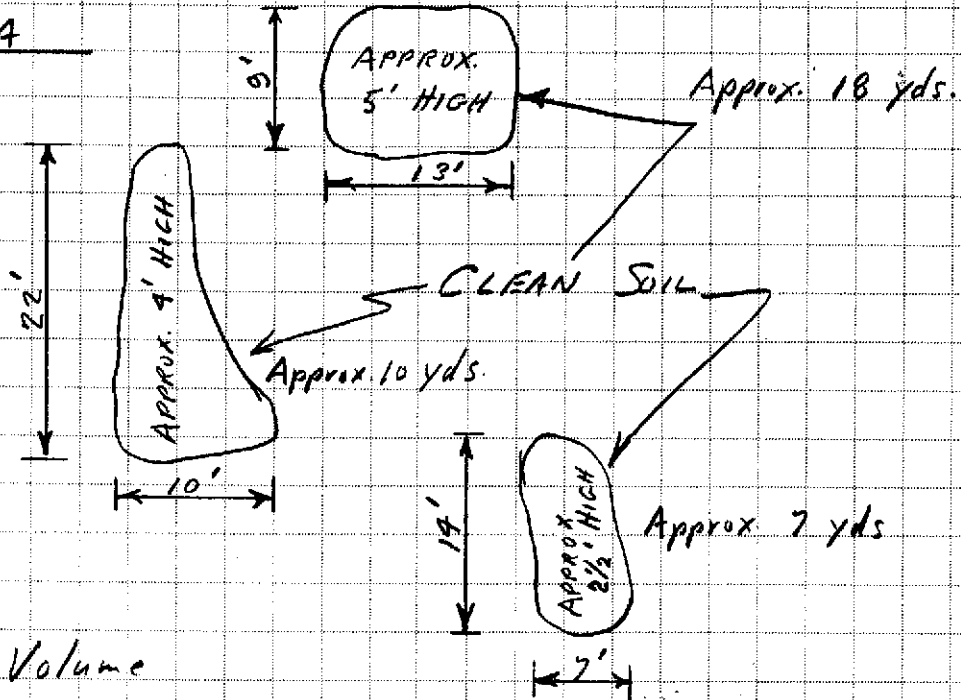 4
9'
APPROX.
5' HIGH
Approx. 18 yds.
13'
22'
APPROX. 4' HIGH
CLEAN SOIL
Approx. 10 yds.
10'
14'
APPROX
2½' HIGH
Approx 7 yds
7'
Volume